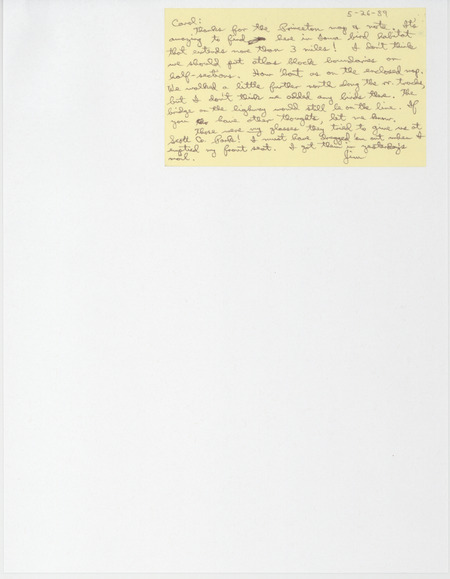 5-26-89
Carol:
Thanks for the Princeton map & note. It's
amazing to find here in Iowa bird habitat
that extends more than 3 miles! I don't think
we should put atlas block boundaries on
half-sections. How 'bout as on the enclosed map.
We walked a little further north along the rr. tracks,
but I don't think we added any birds there. The
bridge on the highway would still be on the line. If
you have other thoughts, let me know.
Those were my glasses they tried to give me at
Scott Co. Park! I must have dragged 'em out when I
emptied my front seat. I got them in yesterday's
mail.
Jim